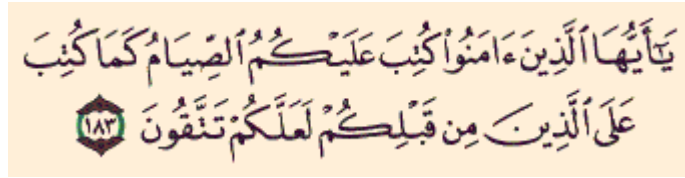 يَـٰٓأَيُّهَا ٱلَّذِينَ ءَامَنُوا۟ كُتِبَ عَلَيْكُمُ ٱلصِّيَامُ كَمَا كُتِبَ
عَلَى ٱلَّذِينَ مِن قَبْلِكُمْ لَعَلَّكُمْ تَتَّقُونَ ١٨٣